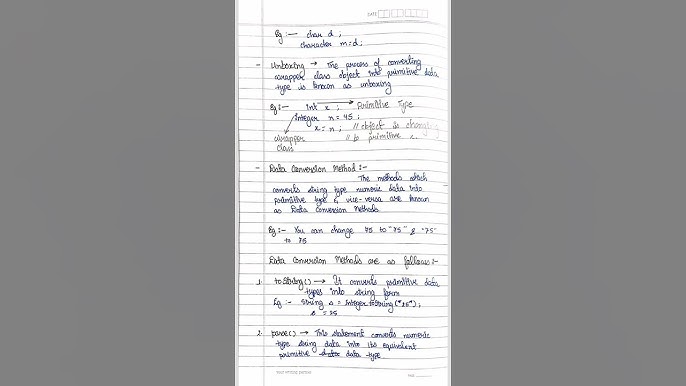 DATE
Eg :— char d ;
character m=d;
- Unboxing → The process of converting
wrapper class object into primitive data
type is known as unboxing
Eg :— Int x ; Primitive Type
Integer n = 45 ;
x = n ; // object is changing
wrapper // to primitive
class
- Data Conversion Method :-
The methods which
converts string type numeric data into
primitive type & vice-versa are known
as Data Conversion Methods
Eg :- You can change 75 to "75" & "75"
to 75
Data Conversion Methods are as follows :-
1. toString() → It converts primitive data
types into string form
Eg :- String s = Integer toString("25") ;
s = 25
2. parse() → This statement converts numeric
type string data into its equivalent
primitive data type